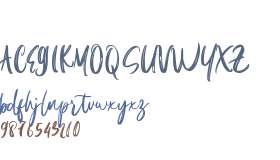 ACEGIKMOQSUVWYXZ
bdfhjlnprtuvxyxz
9876543210